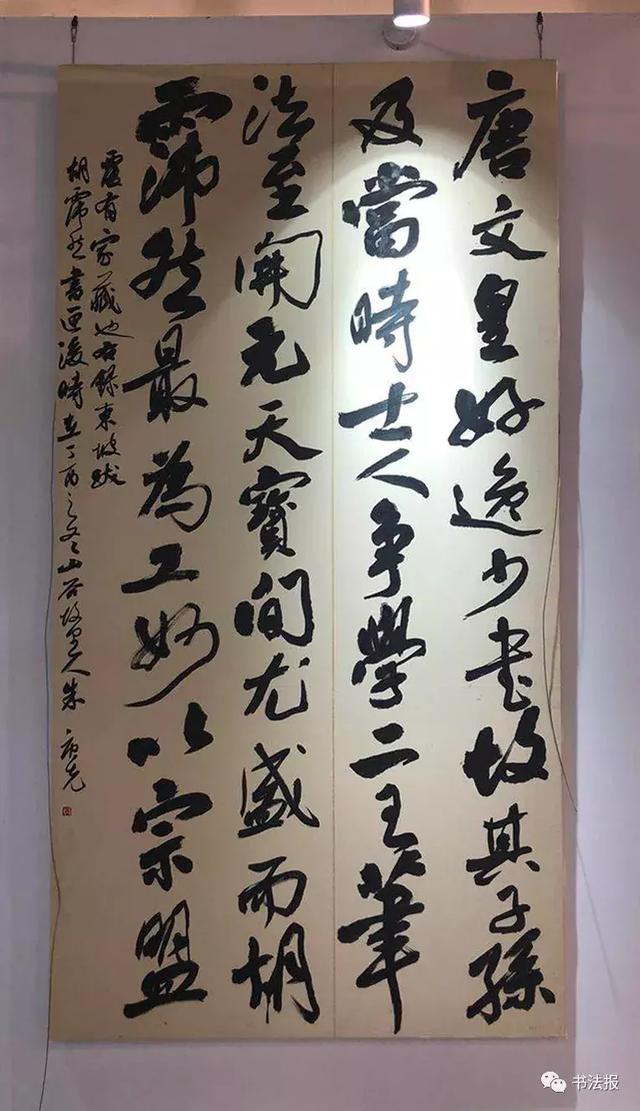 唐文皇好逸少书故其子孫
及當時士人争學二王筆
法至開元天寶間尤盛而胡
霈然最為工妙以宗盟
覆有家藏也右錄東坡跋
胡霈然書匣後時在丁酉之冬山谷故里人朱
书法报